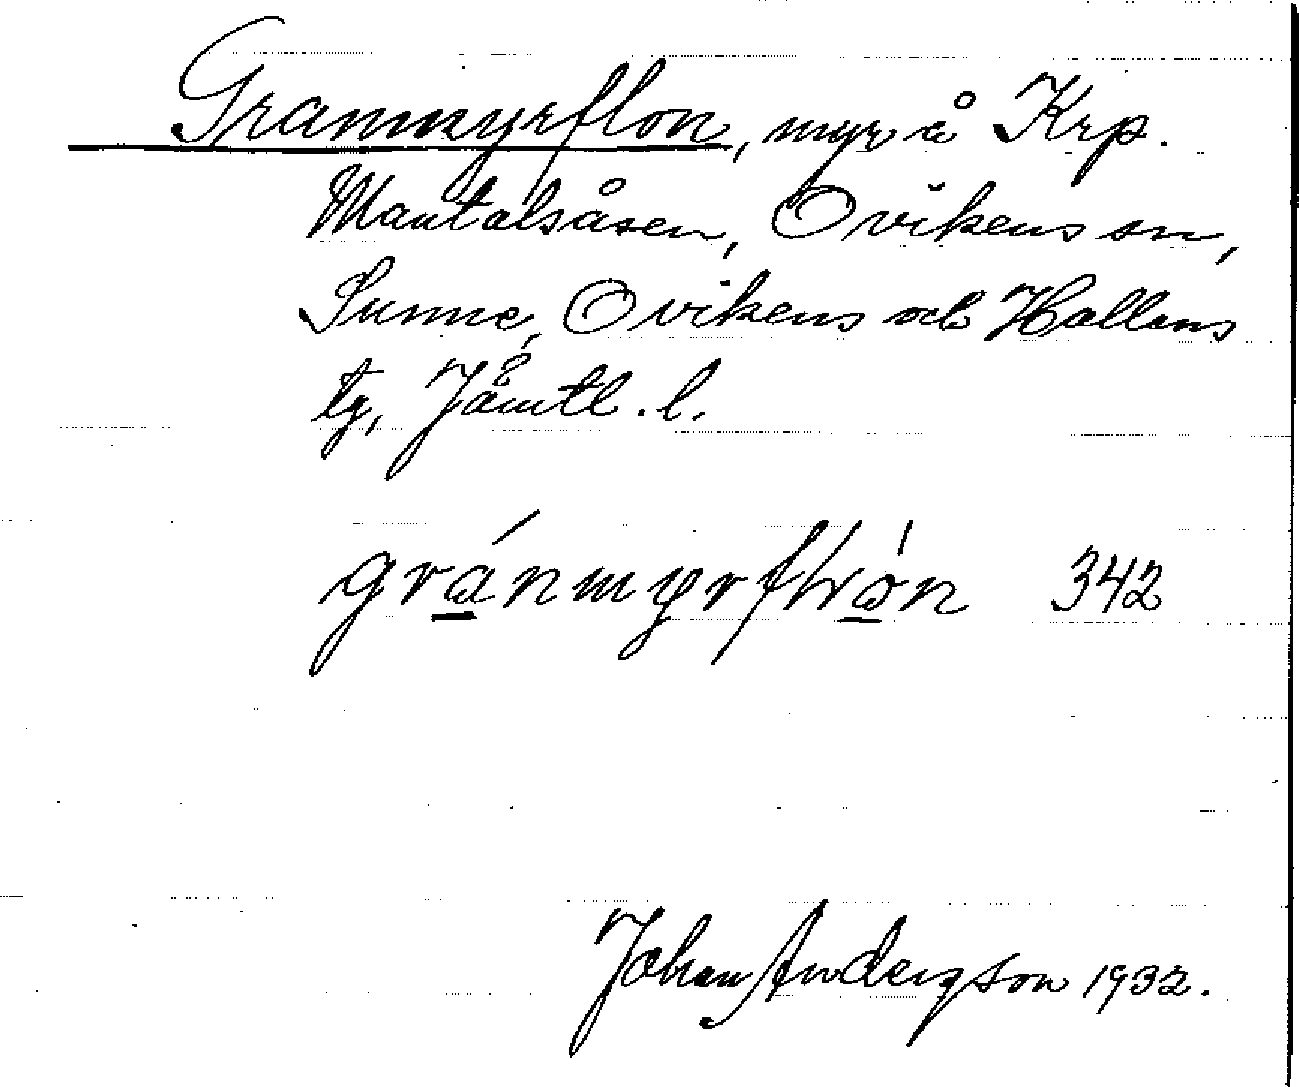 Granmyrflon, myr å Krp.
Mantalsåsen, Ovikens sn,
Sunne, Ovikens och Hallens
tg, Jämtl. l.
gránmyrflɷ́n 342
Johan Andersson 1932.